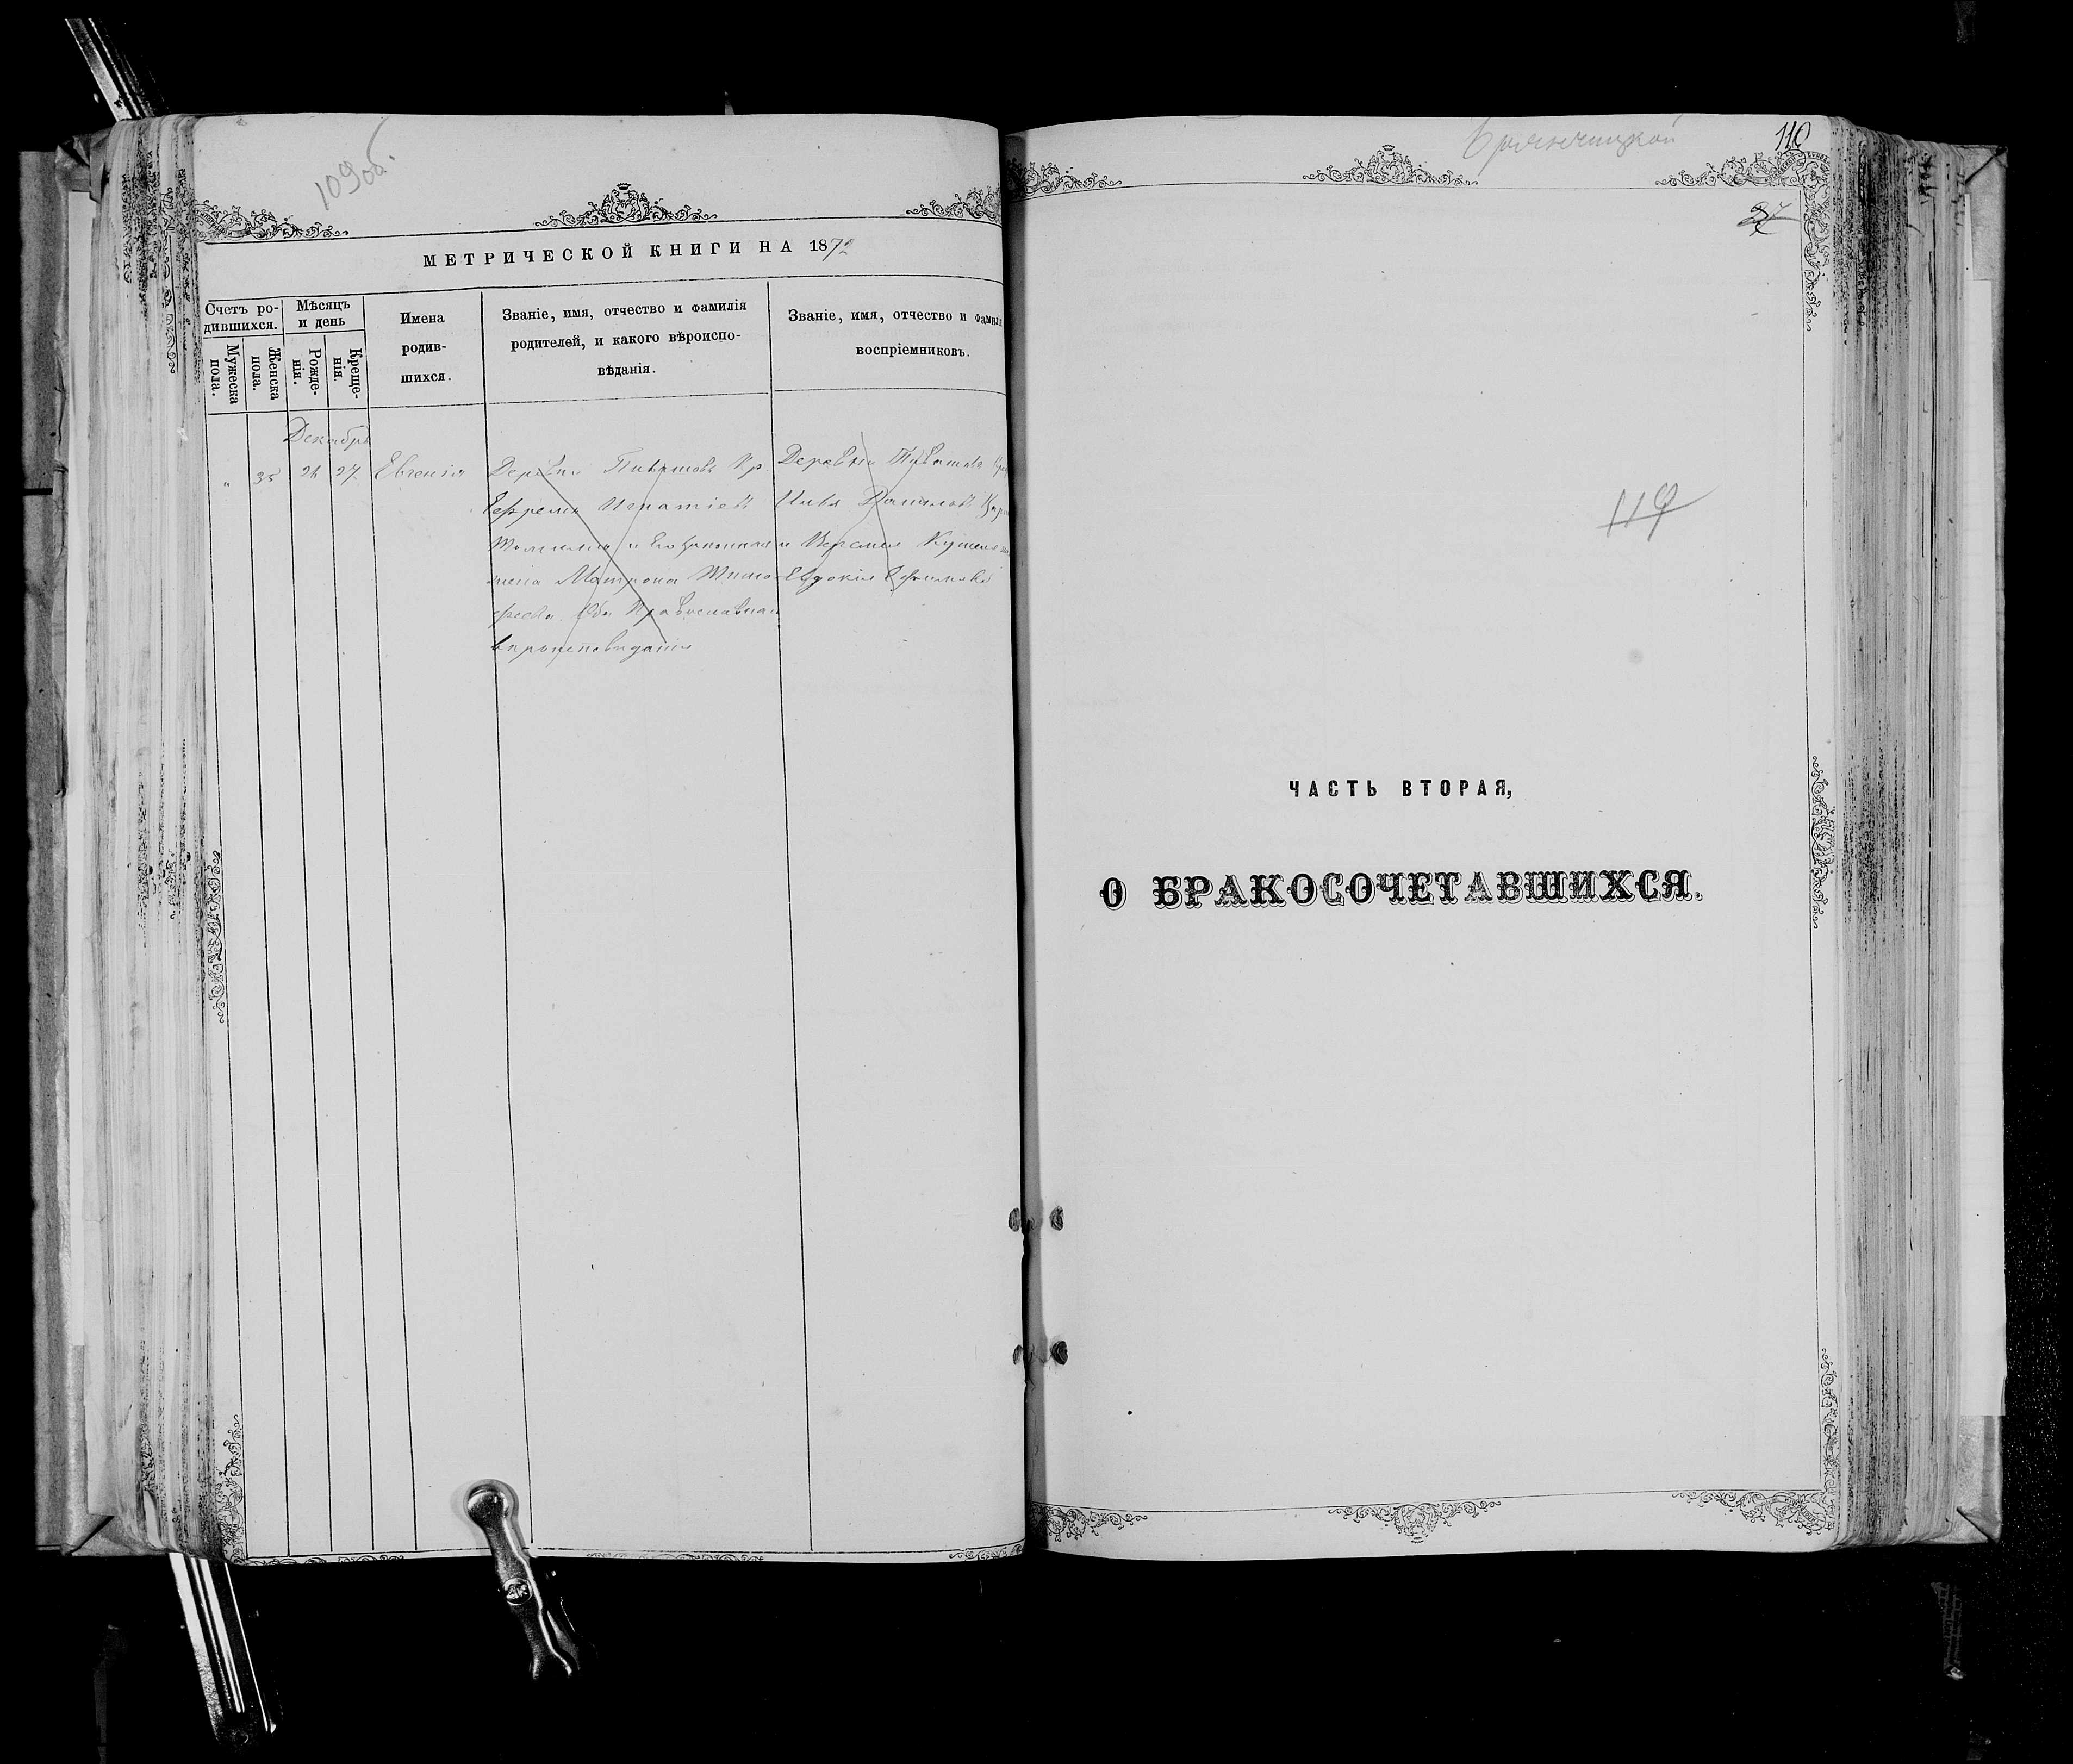 109об.
МЕТРИЧЕСКОЙ КНИГИ НА 1872
Счетъ ро-
дившихся.
Мужеска
пола.
Женска
пола.
Мѣсяцъ
и день
Рожде-
нія.
Креще-
нія.
Имена
родив-
шихся.
Званіе, имя, отчество и фамилія
родителей, и какого вѣроиспо-
вѣданія.
Званіе, имя, отчество и фамилі
воспріемниковъ.
Декабрь
" 35 24 27 Евгенія
Деревни Кр.
Ефремъ Игнатіевъ
и законная
жена Матрона Тимо-
феева Оба Православнаго
вѣроисповѣданія
Деревни
Илья
и
Евдокія
110
119
ЧАСТЬ ВТОРАЯ,
О БРАКОСОЧЕТАВШИХСЯ.